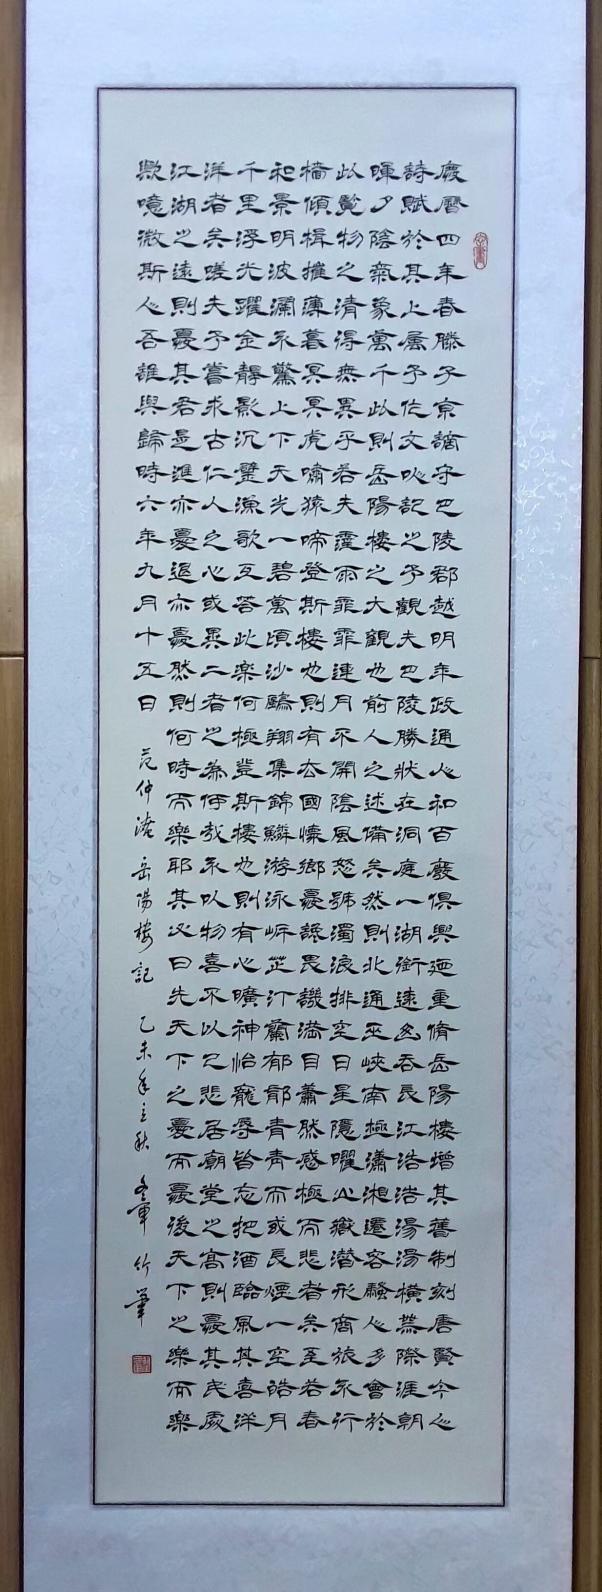 慶曆四年春滕子京謫守巴陵郡越明年政通人和百廢俱興廼重脩岳陽樓增其舊制刻唐賢今人
詩賦於其上屬予作文以記之予觀夫巴陵勝狀在洞庭一湖銜遠山吞長江浩浩湯湯橫無際涯朝
暉夕陰氣象萬千此則岳陽樓之大觀也前人之述備矣然則北通巫峽南極瀟湘遷客騷人多會於
此覽物之清得無異乎若夫霪雨霏霏連月不開陰風怒號濁浪排空日星隱曜山嶽潛形商旅不行
檣傾楫摧薄暮冥冥虎嘯猿啼登斯樓也則有去國懷鄉憂讒畏譏滿目蕭然感極而悲者矣至若春
和景明波瀾不驚上下天光一碧萬頃沙鷗翔集錦鱗游泳岸芷汀蘭郁郁青青而或長煙一空皓月
千里浮光躍金靜影沉璧漁歌互答此樂何極登斯樓也則有心曠神怡寵辱皆忘把酒臨風其喜洋
洋者矣嗟夫予嘗求古仁人之心或異二者之為何哉不以物喜不以己悲居廟堂之高則憂其民處
江湖之遠則憂其君是進亦憂退亦憂然則何時而樂耶其必曰先天下之憂而憂後天下之樂而樂
歟噫微斯人吾誰與歸時六年九月十五日 范仲淹岳陽樓記 乙未年立秋 竹筆